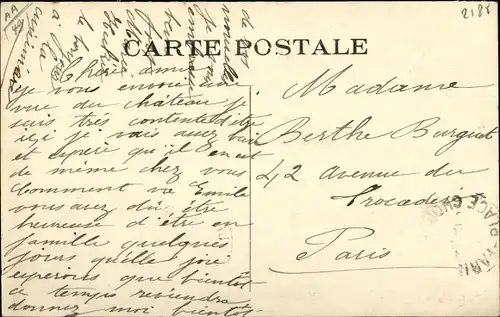 AA
2188
CARTE POSTALE
Chère amie
je vous envoie une
vue du château je
suis très contente d'être
ici je vais assez bien
et espère qu'il en est
de même chez vous
Comment va Emile
vous avez dû être
heureuse d'être en
famille quelques
jours quelle joie
esperons que bientôt
ce temps reviendra
donnez moi bientôt
de vos
nouvelles
Je vous
embrasse
Madame
Berthe Burguet
42 Avenue du
Trocadero
Paris
PLACE